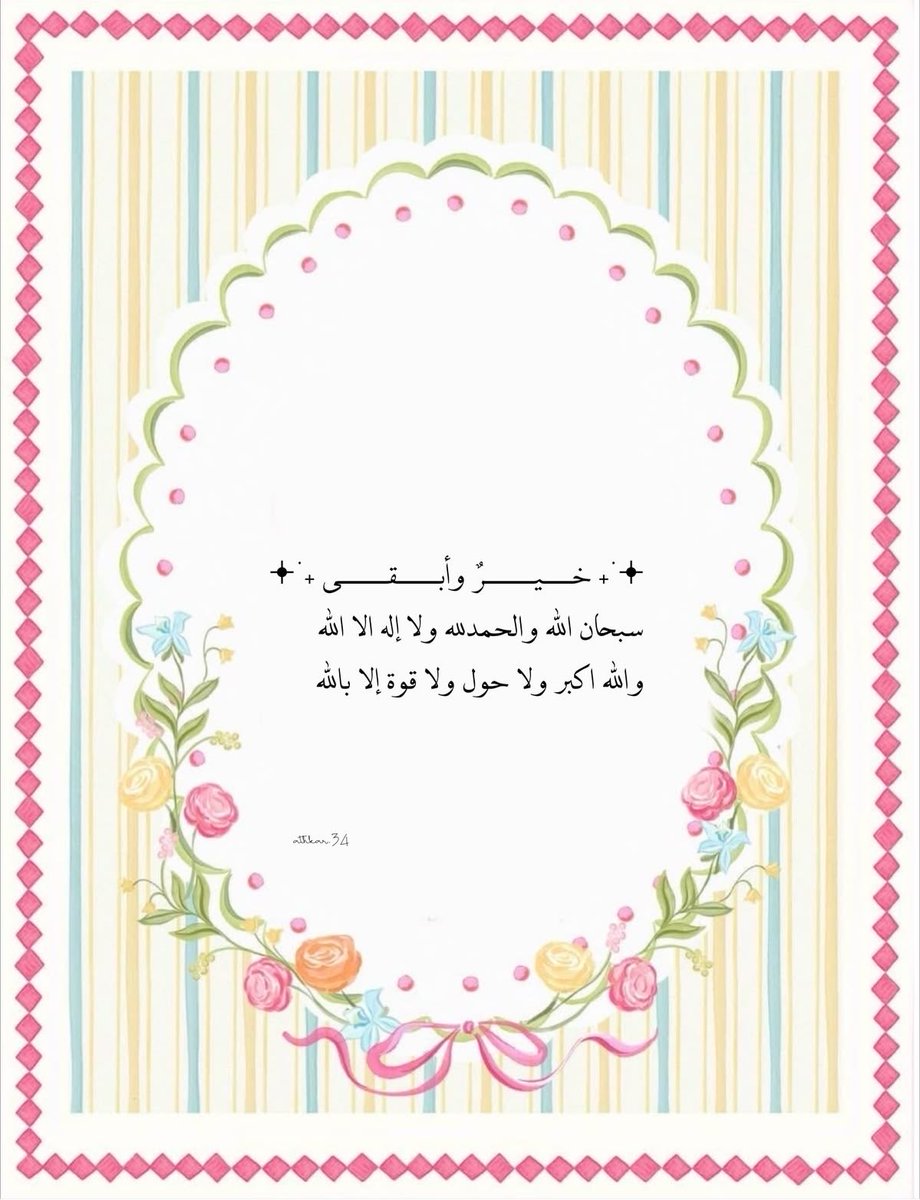 ✦˙₊ خـــيـــــــرٌ وأبـــــــقـــــــى ₊˙✦
سبحان الله والحمدلله ولا إله الا الله
والله اكبر ولا حول ولا قوة إلا بالله
athkar.34